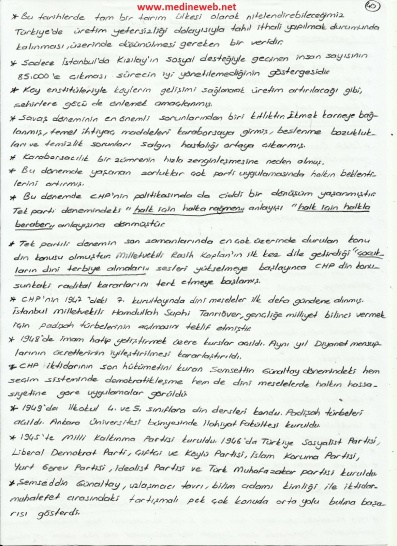 www.medineweb.net
* Bu tarihlerde tam bir tarım ülkesi olarak nitelendirebileceğimiz
Türkiye'de üretim yetersizliği dolayısıyla tahıl ithali yapılmak durumunda
kalınması, üzerinde düşünülmesi gereken bir veridir.
* Sadece İstanbul'da Kızılay'ın sosyal desteğiyle geçinen insan sayısının
85.000'e çıkması sürecin iyi yönetilemediğinin göstergesidir
* Köy enstitüleriyle köylerin gelişimi sağlanarak üretim artırılacağı gibi,
şehirlere göçü de önlemek amaçlanmış.
* Savaş döneminin en önemli sorunlarından biri kıtlıktır. Ekmek karneye bağ-
lanmış, temel ihtiyaç maddeleri karaborsaya girmiş, beslenme bozukluk-
ları ve temizlik sorunları salgın hastalığı ortaya çıkarmış.
* Karaborsacılık bir zümrenin hızla zenginleşmesine neden olmuş.
* Bu dönemde yaşanan zorluklar çok parti uygulamasında halkın beklenti-
lerini artırmış.
* Bu dönemde CHP'nin politikasında da ciddi bir dönüşüm yaşanmıştır
Tek parti dönemindeki "halk için halka rağmen" anlayışı "halk için halkla
beraber" anlayışına dönmüştür
* Tek partili dönemin son zamanlarında en çok üzerinde durulan konu
din konusu olmuştur. Milletvekili Rasih Kaplan'ın ilk kez dile getirdiği "çocuk-
ların dini terbiye almaları" sesleri yükselmeye başlayınca CHP din konu-
sundaki radikal kararlarını terk etmeye başlamış.
* CHP'nin 1947'deki 7. kurultayında dini meseleler ilk defa gündeme alınmış.
İstanbul Milletvekili Hamdullah Suphi Tanrıöver, gençliğe milliyet bilinci vermek
için padişah türbelerinin açılmasını teklif etmiştir
* 1948'de imam hatip yetiştirmek üzere kurslar açıldı. Aynı yıl Diyanet mensup-
larının ücretlerinin iyileştirilmesi kararlaştırıldı.
* CHP iktidarının son hükümetini kuran Şemsettin Günaltay dönemindeki hem
seçim sisteminde demokratikleşme hem de dini meselelerde halkın hassa-
siyetine göre uygulamalar görüldü
* 1949'da ilkokul 4. ve 5. sınıflara din dersleri kondu. Padişah türbeleri
açıldı. Ankara Üniversitesi bünyesinde İlahiyat Fakültesi kuruldu
* 1945'te Milli Kalkınma Partisi kuruldu. 1946'da Türkiye Sosyalist Partisi,
Liberal Demokrat Parti, Çiftçi ve Köylü Partisi, İslam Koruma Partisi,
Yurt Görev Partisi, İdealist Partisi ve Türk Muhafazakar partisi kuruldu
* Şemseddin Günaltay, uzlaşmacı tavrı, bilim adamı kimliği ile iktidar-
muhalefet arasındaki tartışmalı pek çok konuda orta yolu bulma başa-
rısı gösterdi.